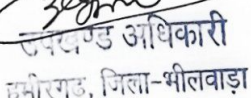 उपखण्ड अधिकारी
हमीरगढ, जिला-भीलवाड़ा